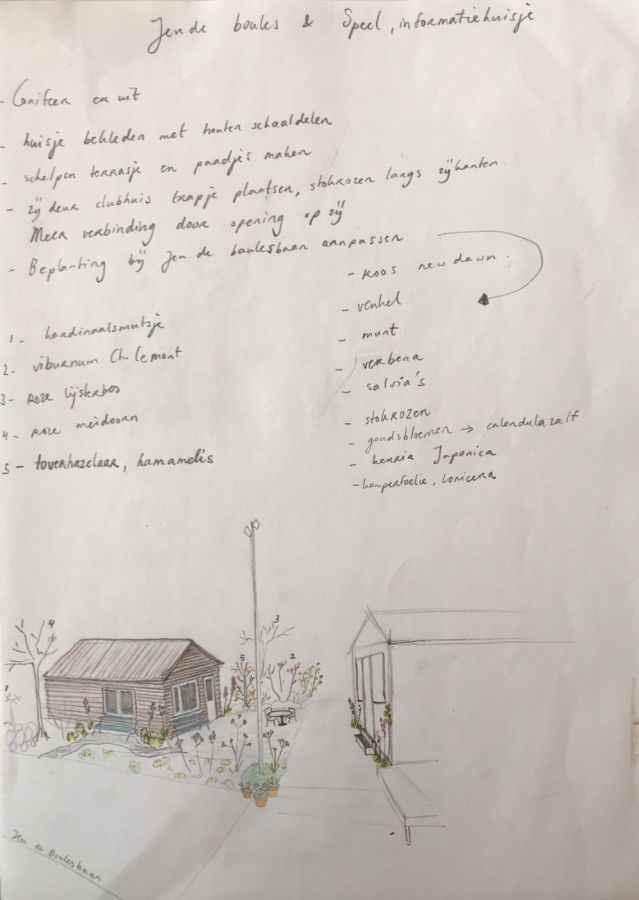 Jeu de boules & Speel, informatiehuisje
- Conifeer en uit
- huisje bekleden met houten schaaldelen
- schelpen terrasje en paadjes maken
- zij deur clubhuis trapje plaatsen, stokrozen langs zijkanten.
Meer verbinding door opening op zij
- Beplanting bij Jeu de boulesbaan aanpassen
- Roos new dawn.
- venkel
- munt
- verbena
- salvia's
- stokrozen
- goudsbloemen → calendulazalf
- kerria Japonica
- kamperfoelie, lonicera
1 - kardinaalsmutsje
2 - viburnum Ch. lemont
3 - roze lijsterbes
4 - roze meidoorn
5 - toverhazelaar, hamamelis
4
3
5
2
1
Jeu de Boulesbaan